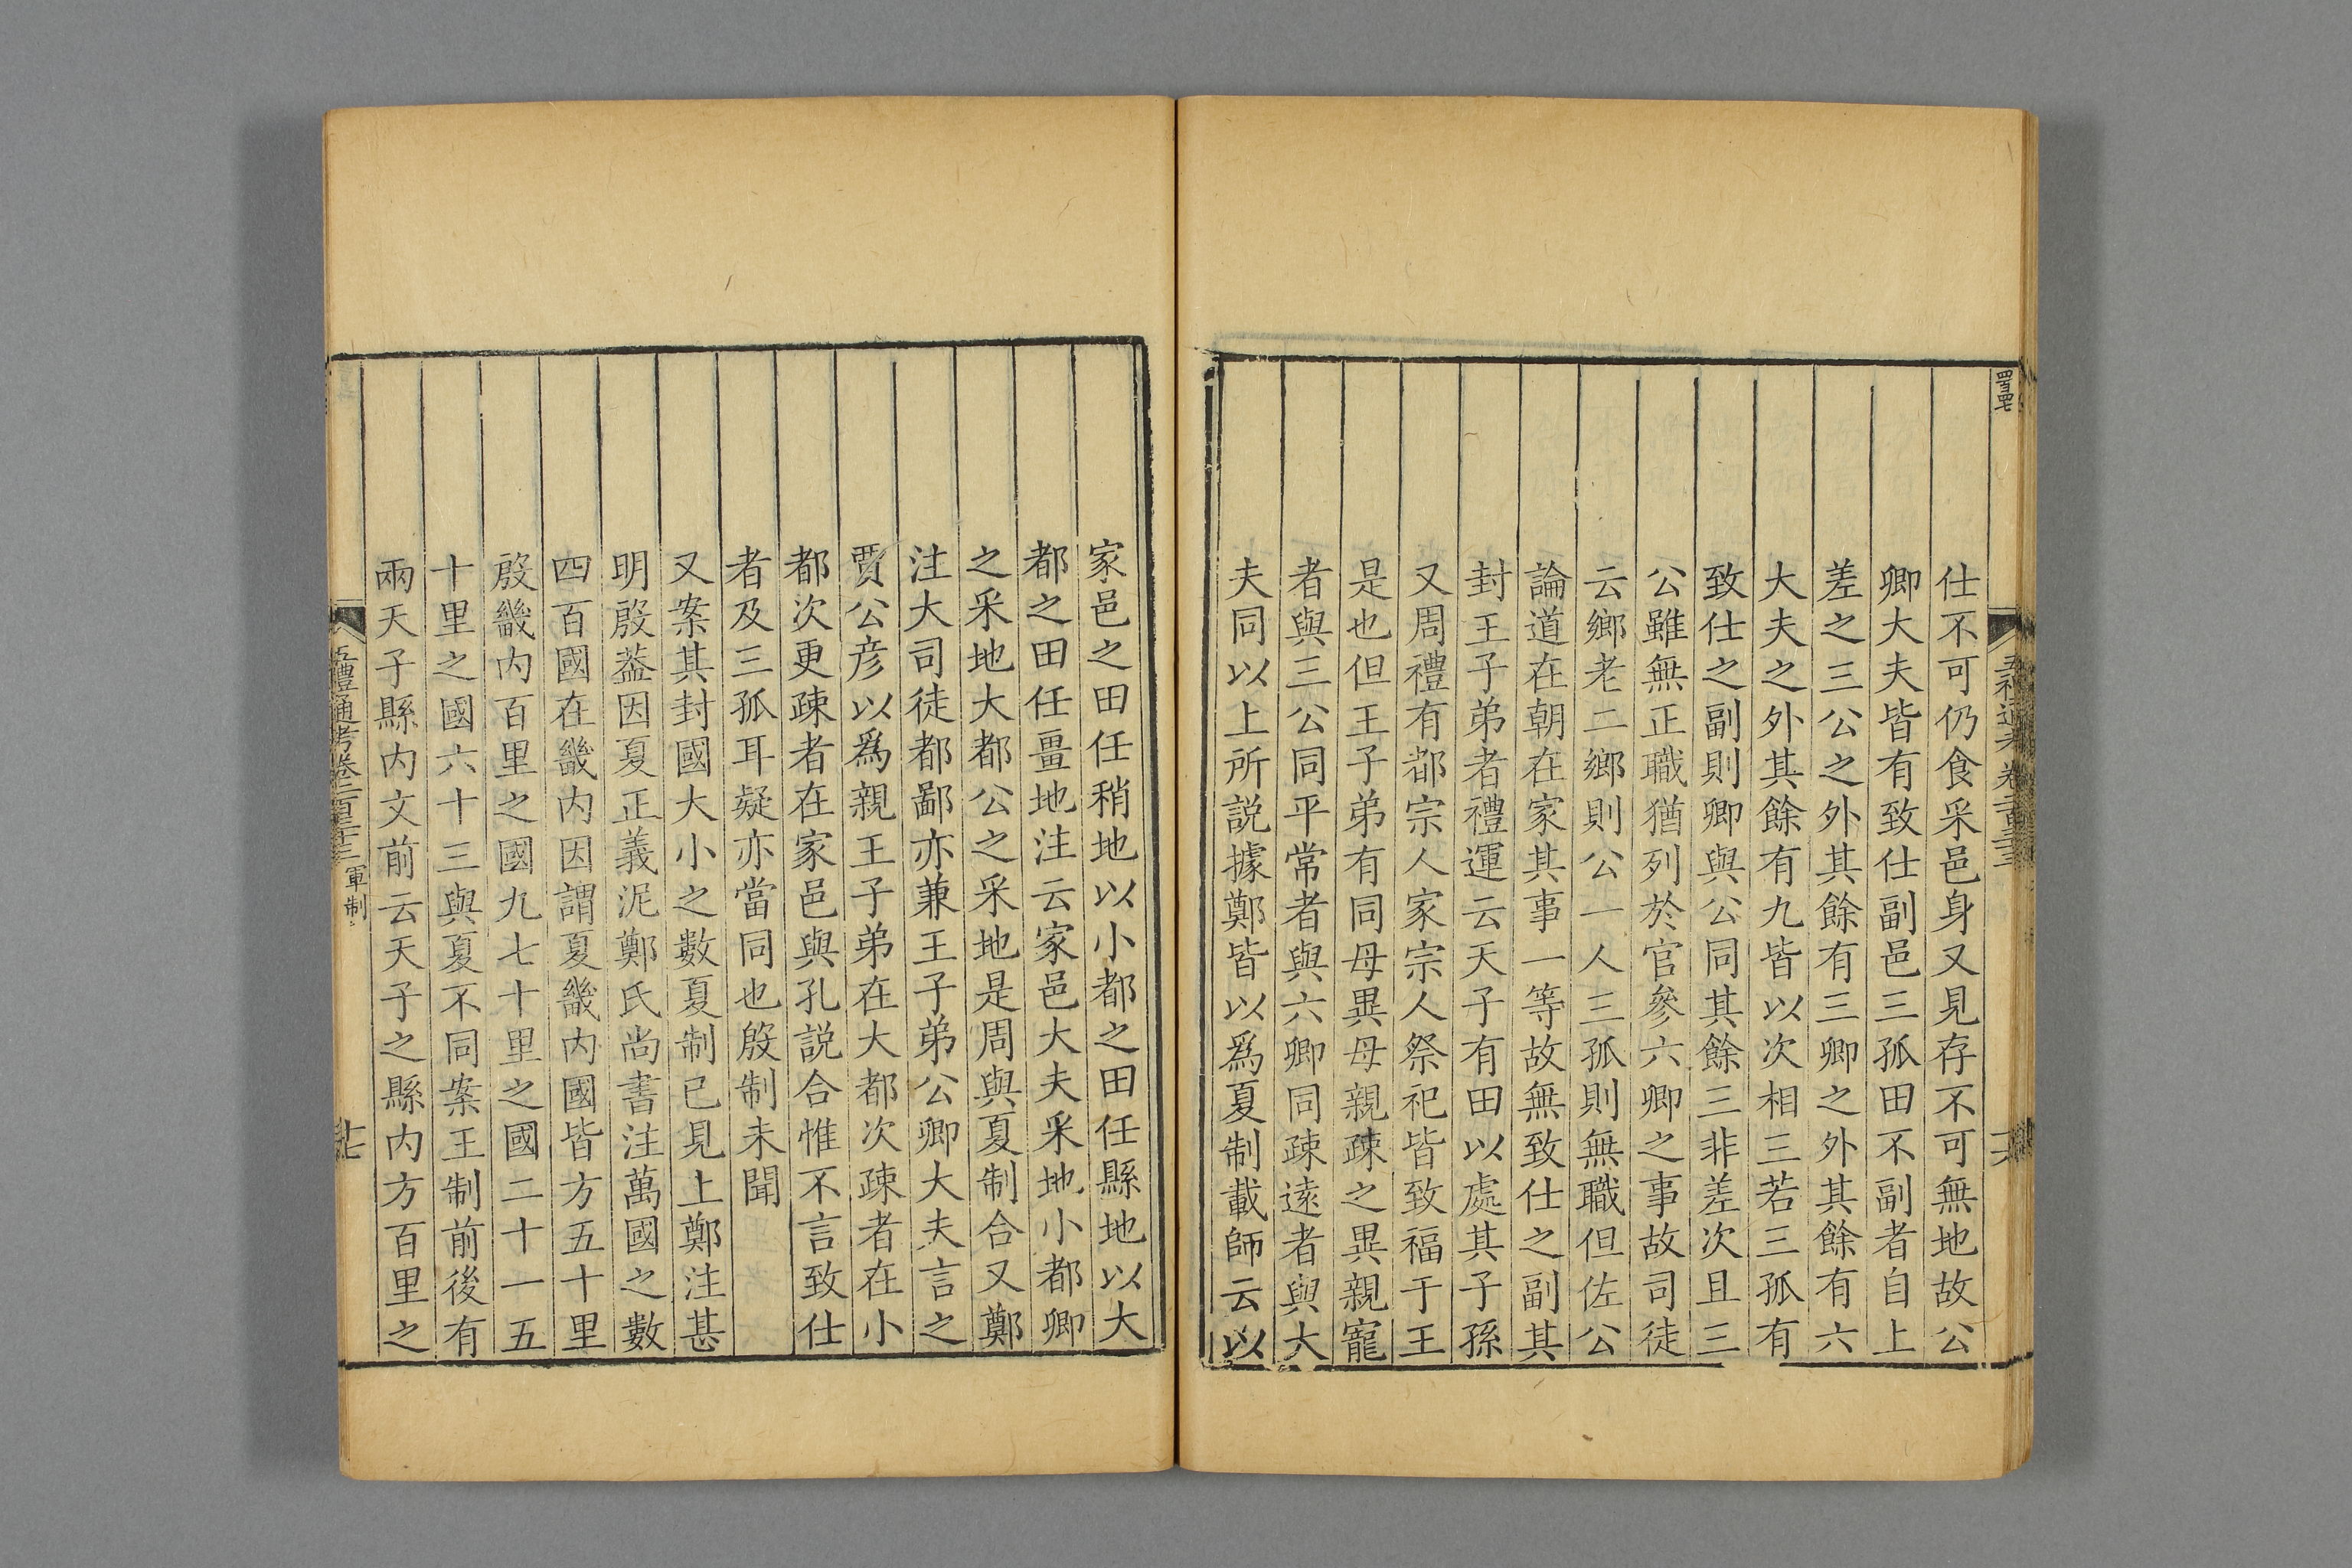 仕不可仍食采邑身又見存不可無地故公
卿大夫皆有致仕副邑三孤田不副者自上
差之三公之外其餘有三卿之外其餘有六
大夫之外其餘有九皆以次相三若三孤有
致仕之副則卿與公同其餘三非差次且三
公雖無正職猶列於官參六卿之事故司徒
云鄉老二鄉則公一人三孤則無職但佐公
論道在朝在家其事一等故無致仕之副其
封王子弟者禮運云天子有田以處其子孫
又周禮有都宗人家宗人祭祀皆致福于王
是也但王子弟有同母異母親疎之異親寵
者與三公同平常者與六卿同疎逺者與大
夫同以上所説據鄭皆以爲夏制載師云以
家邑之田任稍地以小都之田任縣地以大
都之田任畺地注云家邑大夫采地小都卿
之采地大都公之采地是周與夏制合又鄭
注大司徒都鄙亦兼王子弟公卿大夫言之
賈公彦以爲親王子弟在大都次疎者在小
都次更疎者在家邑與孔説合惟不言致仕
者及三孤耳疑亦當同也殷制未聞
又案其封國大小之數夏制已見上鄭注甚
明殷葢因夏正義泥鄭氏尚書注萬國之數
四百國在畿内因謂夏畿内國皆方五十里
殷畿内百里之國九七十里之國二十一五
十里之國六十三與夏不同案王制前後有
兩天子縣内文前云天子之縣内方百里之
五禮通考卷二百三十三 軍制